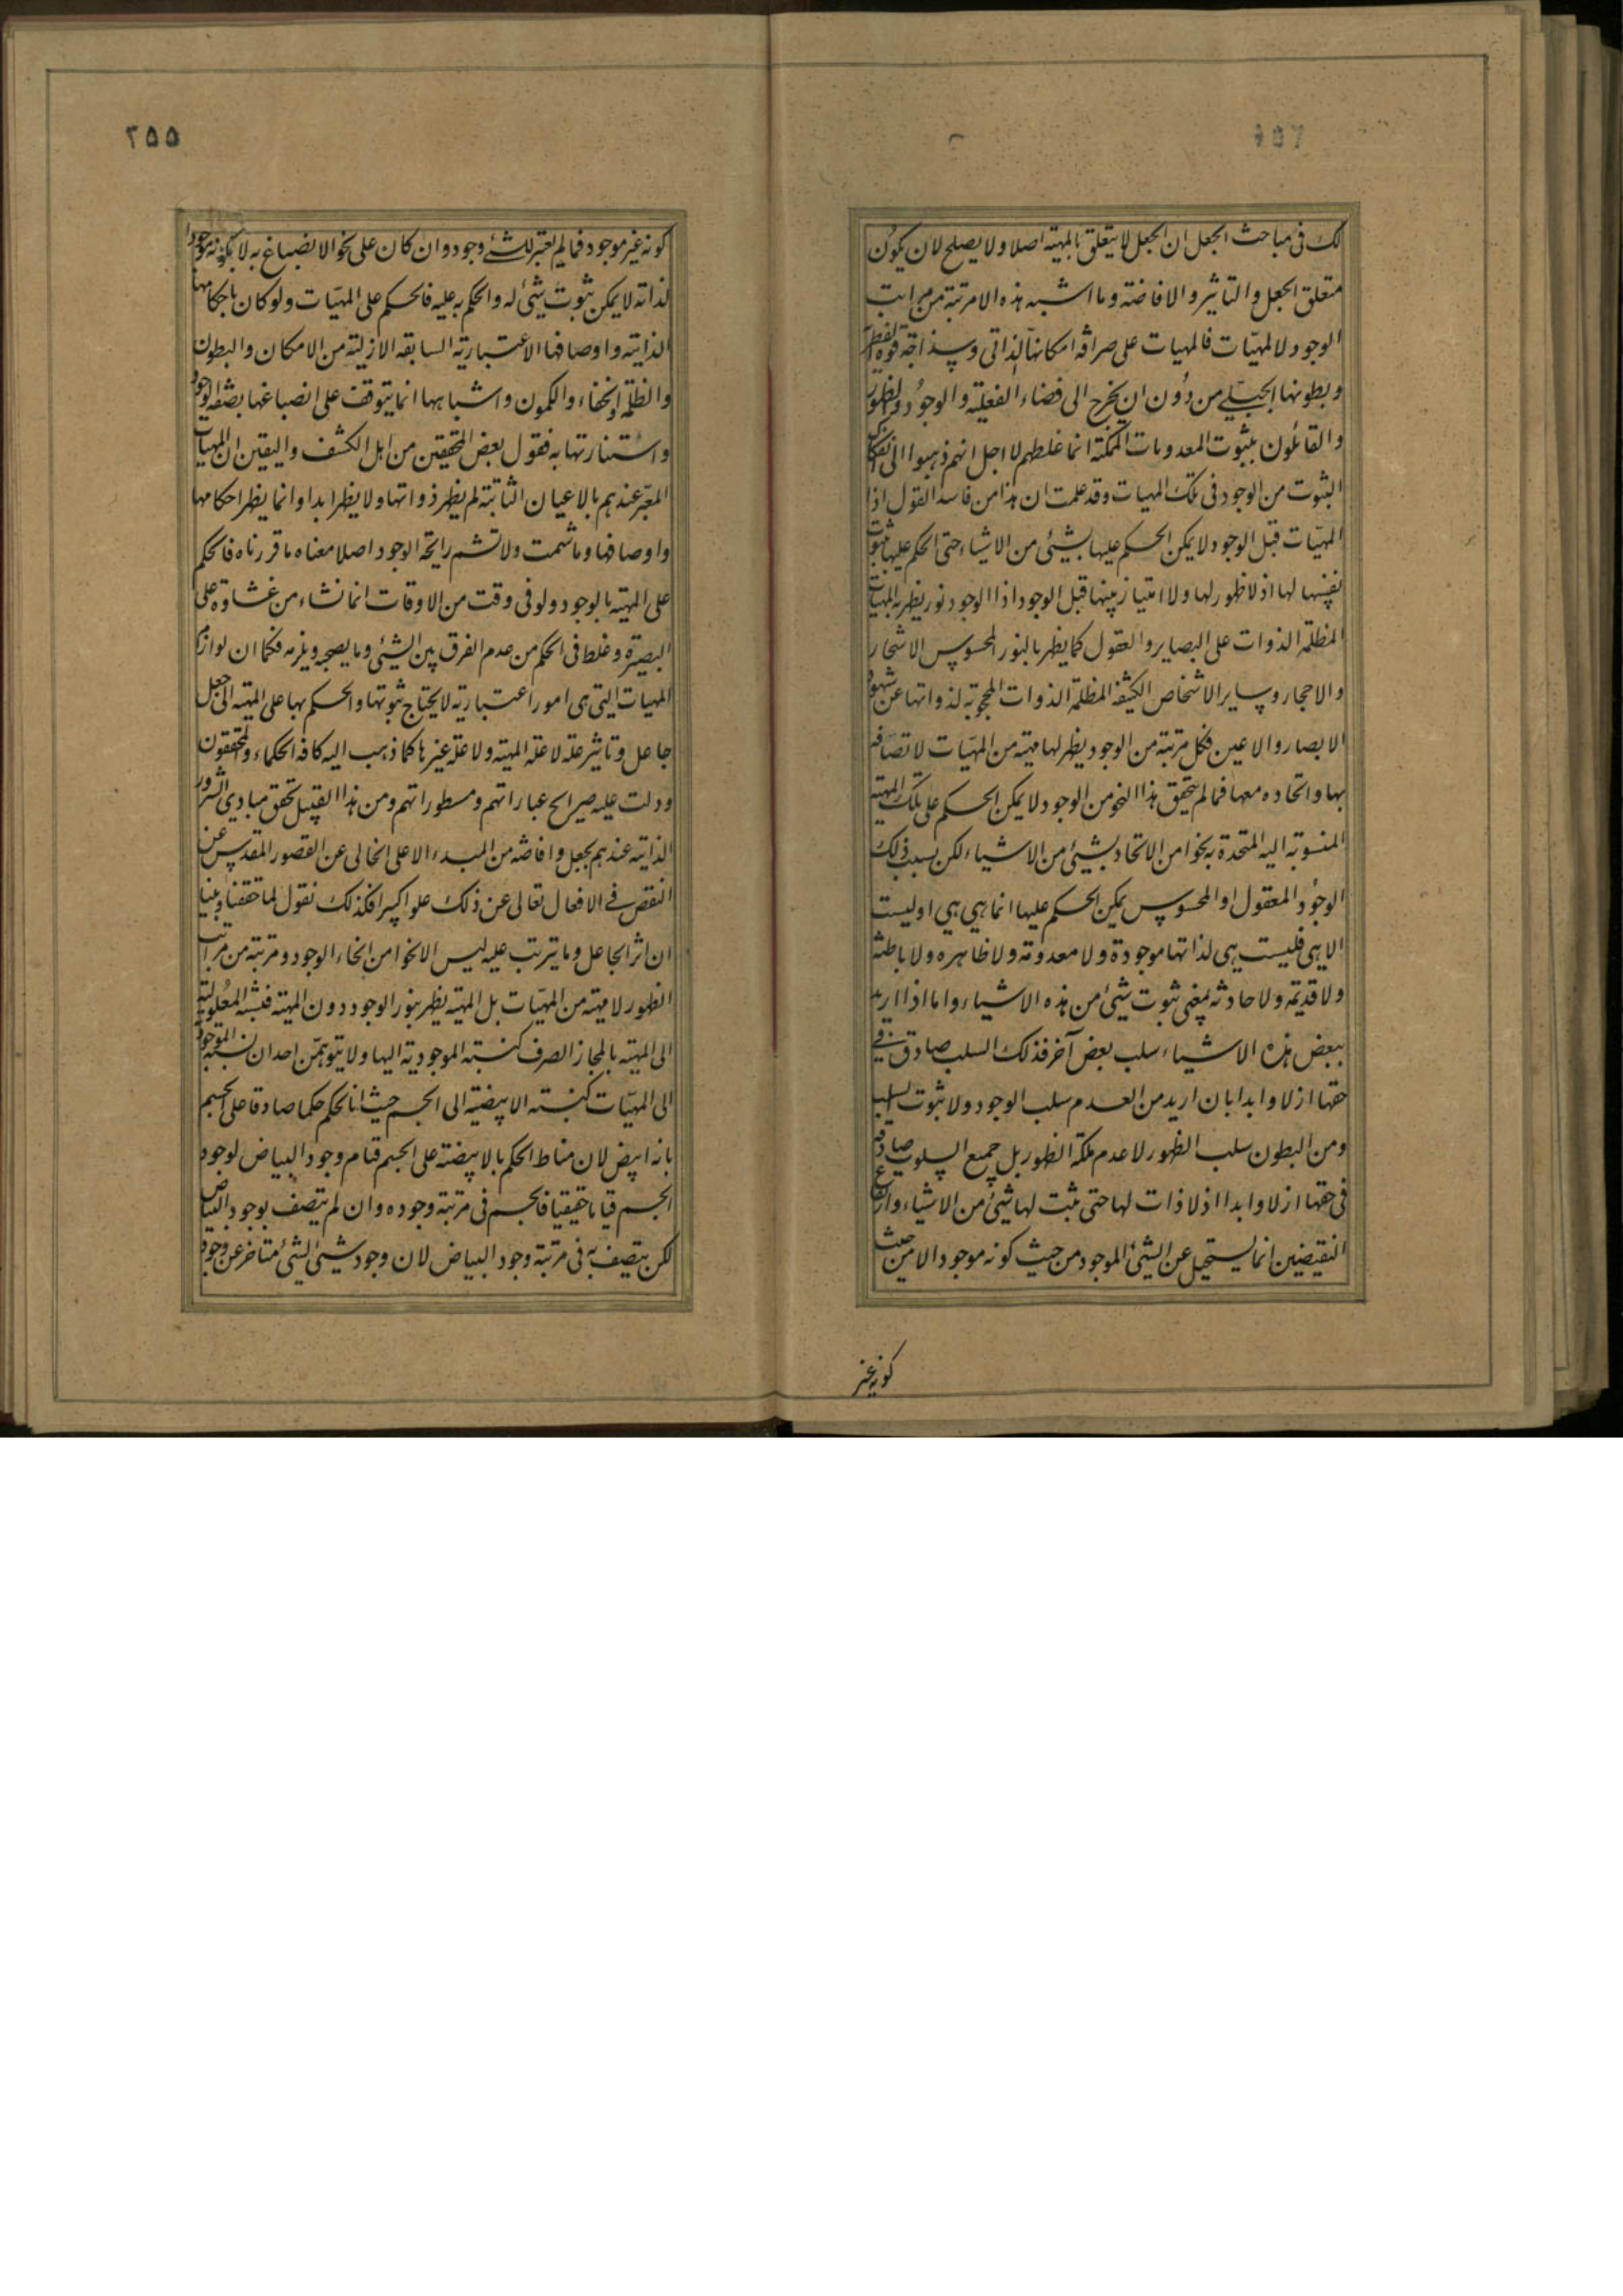 لك فى مباحث الجعل ان الجعل لا يتعلق بالمهيته اصلا ولا يصلح لان يكون
متعلق الجعل والتاثير والافاضته وما اشبه هذه الا مرتبة من مراتب
الوجود لا المهيّات فالمهيات على صرافه امكانها الذاتى وسذاجة قوتها
وبطونها الجبلى من دون ان يخرج الى فضاء الفعليته والوجود والظهور
والقائلون بثبوت المعدومات الممكنة انما غلطهم لاجل انهم ذهبوا الى انفكاك
الثبوت من الوجود فى تلك المهيات وقد علمت ان هذا من فاسد القول اذا
المهيّات قبل الوجود لا يمكن الحكم عليها بشيئى من الاشياء حتى الحكم عليها بثبوت
نفسها لها اذ لا ظهور لها ولا امتياز بينها قبل الوجود اذا الوجود نور يظهر به المهيات
المظلمه الذوات على البصاير والعقول كما يظهر بالنور المحسوس الاشجار
والاحجار وساير الاشخاص الكثيفه المظلمه الذوات المحجوبة لذواتها عن شهود
الابصار والاعين فكل مرتبته من الوجود يظهر لها مهيته من المهيّات لاتصافه
بها واتحاده معها فمالم يتحقق هذا النحو من الوجود لا يمكن الحكم على تلك المهيته
المنسوبته اليه المتحدة به نحوا من الاتحاد بشيئى من الاشياء لكن بسبب ذلك
الوجود المعقول او المحسوس يمكن الحكم عليها انما هى هى او ليست
الا هى فليست هى لذاتها موجودة ولا معدومته ولا ظاهره ولا باطنته
ولا قديمته ولا حادثه بمعنى ثبوت شيئى من هذه الاشياء واما اذا اريد
ببعض هذه الاشياء سلب بعض آخر فذلك السلب صادق فى
حقها ازلا وابدا بان اريد من العدم سلب الوجود ولا ثبوت السلب
ومن البطون سلب الظهور لا عدم ملكة الظهور بل جميع السلوب صادقه
فى حقها ازلا وابدا اذ لا ذات لها حتى يثبت لها شيئى من الاشياء وارتفاع
النقيضين انما يستحيل عن الشيئى الموجود من حيث كونه موجود الا من حيث
كونه غير
٢٥٥
كونه غير موجود فمالم يعتبر للشئ وجود وان كان على نحو الانصباغ به لا بكونه موجودا
لذاته لا يمكن ثبوت شيئى له والحكم به عليه فالحكم على المهيّات ولو كان باحكامها
الذاتيته واوصافها الاعتباريته السابقه الازليته من الامكان والبطون
والظلمه والخفاء والكمون واشباهها انما يتوقف على انصباغها بصفه الوجود
واستنارتها به فقول بعض المحققين من اهل الكشف واليقين ان المهيات
المعبّر عندهم بالاعيان الثابتة لم يظهر ذواتها ولا يظهر ابدا وانما يظهر احكامها
واوصافها وما شمت ولا تشم رايحة الوجود اصلا معناه ما قررناه فالحكم
على المهيته بالوجود ولو فى وقت من الاوقات انما نشاء من غشاوة على
البصيرة وغلط فى الحكم من عدم الفرق بين الشيئى وما يصحبه ويلزمه فكما ان لوازم
المهيات التى هى امورا اعتباريه لا يحتاج ثبوتها والحكم بها على المهيته الى جعل
جاعل وتاثير علته لا علة المهيته ولا علة غيرها كما ذهب اليه كافه الحكماء والمحققون
ودلت عليه صرايح عباراتهم ومسطوراتهم ومن هذا القبيل تحقق مبادى الشرور
الذاتيه عندهم بجعل وافاضه من المبدء الاعلى الخالى عن القصور المقدس عن
النقص فى الافعال تعالى عن ذلك علوا كبيرا فكذلك نقول لما حققنا وبينا
ان اثر الجاعل وما يترتب عليه ليس الا نحوا من انحاء الوجود ومرتبة من مراتب
الظهور لا مهيته من المهيّات بل المهيته يظهر بنور الوجود دون المهيته فنسبة المعلولية
الى المهيته بالمجاز الصرف كنسبته الموجوديته اليها ولا يتوهمّن احد ان نسبته الموجودية
الى المهيّات كنسبته الابيضيته الى الجسم حيث انا نحكم حكما صادقا على الجسم
بانه ابيض لان مناط الحكم بالابيضته على الجسم قيام وجود البياض لوجود
الجسم قياما حقيقيا فالجسم فى مرتبة وجوده وان لم يتصف بوجود البياض
لكن يتصف به فى مرتبة وجود البياض لان وجود شيئى لشيئى متاخر عن وجود